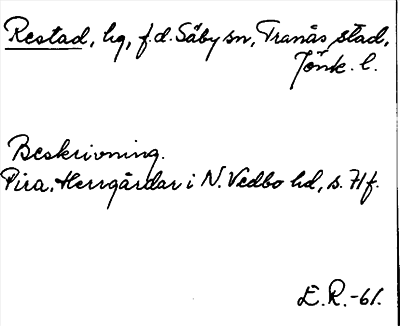 Restad, hg, f.d. Säby sn, Tranås stad,
Jönk. l.
Beskrivning.
Pira, Herrgårdar i N. Vedbo hd, s. 71f.
E.R.-61.